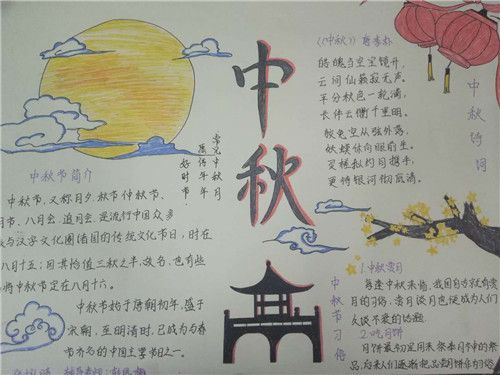 中秋
中秋节简介
中秋节,又称月夕、秋节、仲秋节、
月节、八月会、追月会、是流行中国众多
族与汉字文化圈诸国的传统文化节日,时在
八月十五;因其恰值三秋之半,故名,也有些
将中秋节定在八月十六。
中秋节始于唐朝初年,盛于
宋朝,至明清时,已成为与春
节齐名的中国主要节日之一。
《《中秋》》唐李朴
皓魄当空宝镜升,
云间仙籁寂无声。
平分秋色一轮满,
长伴云衢千里明。
狡兔空从弦外落,
妖蟆休向眼前生。
灵槎拟约同携手,
更待银河彻底清。
中秋诗词
中秋节习俗
1.中秋赏月
每逢中秋来临,我国自古就有赏
月的习俗,赏月谈月也便成为人们
久谈不衰的话题
2.吃月饼
月饼最初是用来祭奉月神的祭
品,后来人们逐渐把品尝月饼作为习俗